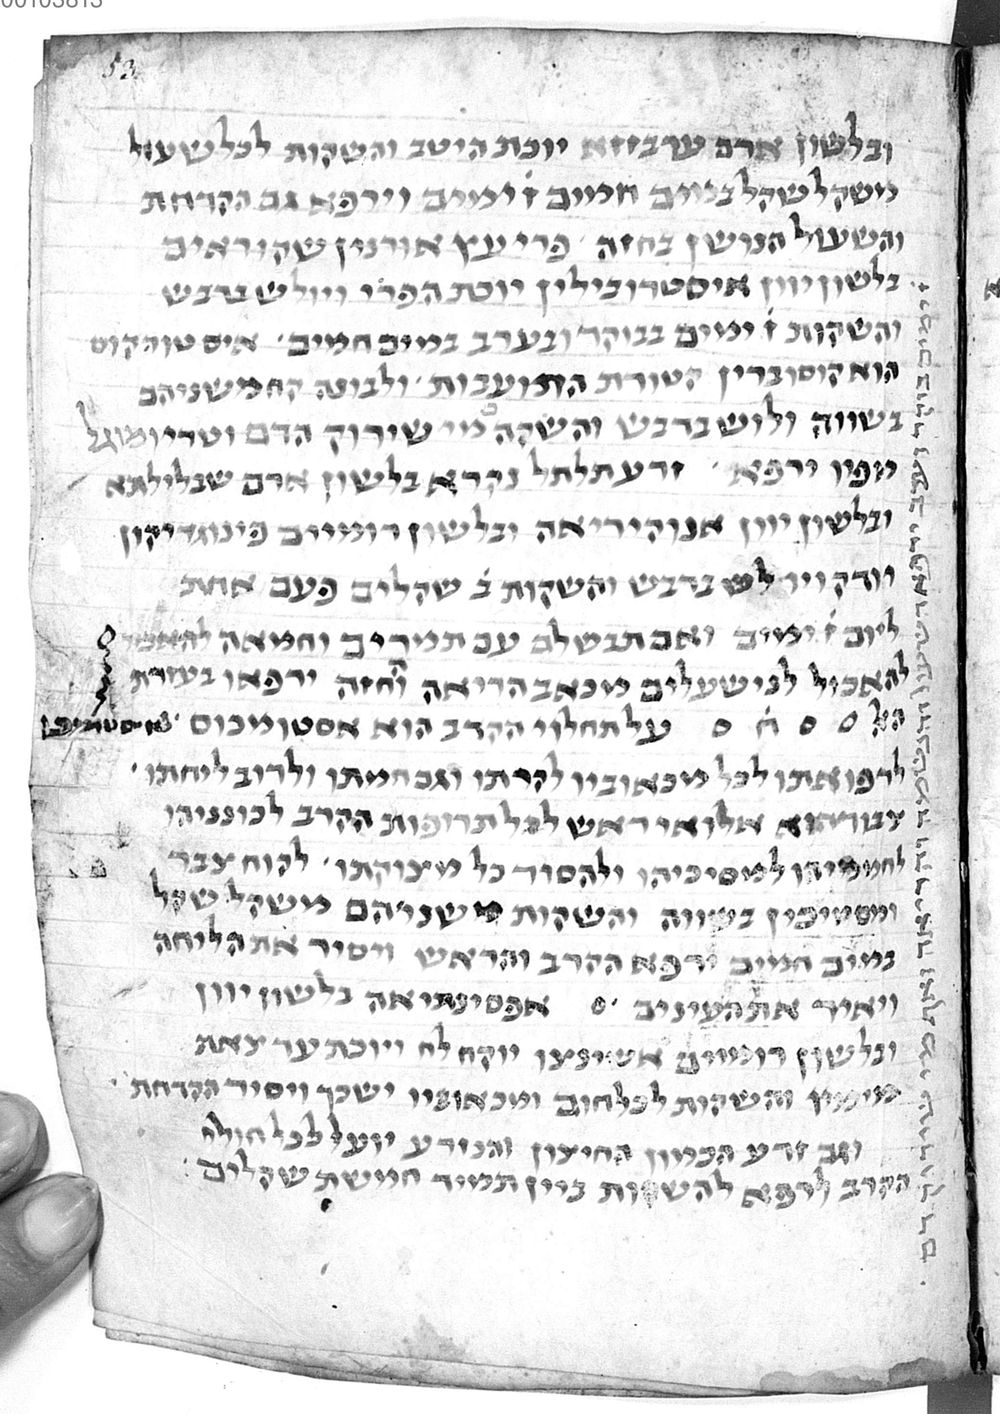 00103813
53
ובלשון ארם ערבוזא יוכת היטב והשקות לכל שעול
משקל שקל במים חמים ז ימים וירפא גם הקדחת
והשעול הנושן בחזה פרי עץ אורנין שקוראים
בלשון יוון איסטרובילין יוכת הפרי ויולש בדבש
והשקות ז ימים בבוקר ובערב במים חמים
הוא קוסוברין קטורת התועבות ולבונה קח משניהם
בשווה ולוש בדבש והשקה מי שירוק הדם וטריו
יופיו ירפא זרע תלתל נקרא בלשון ארם שבלילתא
ובלשון יוון אנוקיריאה ובלשון רומיים פינוגריקון
יודק ויולש בדבש והשקות ב שקלים פעם אחת
ליום ז ימים ואם תבשלם עם תמרים וחמאה
להאכול לנישעלים מכאב הריאה והחזה ירפאו בעזרת
על תחלוי הקרב הוא אסטומכוס
לרפואתו לכל מכאוביו לקרתו וגם חמתו ולרוב ליחתו
צבר הוא אלואי ראש לכל תרופות הקרב לכונניהו
לחממיהו למסיכיהו ולהסיר כל מצוקתו לקוח צבר
ומסטיכין בשווה והשקות משניהם משקל שקל
במים חמים ירפא הקרב והראש ויסיר את הליחה
ויאיר את העינים אפסינתיאה בלשון יוון
ובלשון רומיים אשינצו יוקח לח ויוכת עד צאת
מימיו והשקות לכל חום ומכאוביו ישכך ויסיר הקדחת
וגם זרע הכמון החיצון והנזרע יועל לכל חולי
הקרב לרפא להשקות ביין תמיד חמשת שקלים